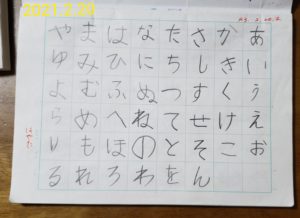 2021.2.20
あいうえお
かきくけこ
さしすせそ
たちつてと
なにぬねの
はひふへほ
まみむめも
やゆよらりる
れろわをん